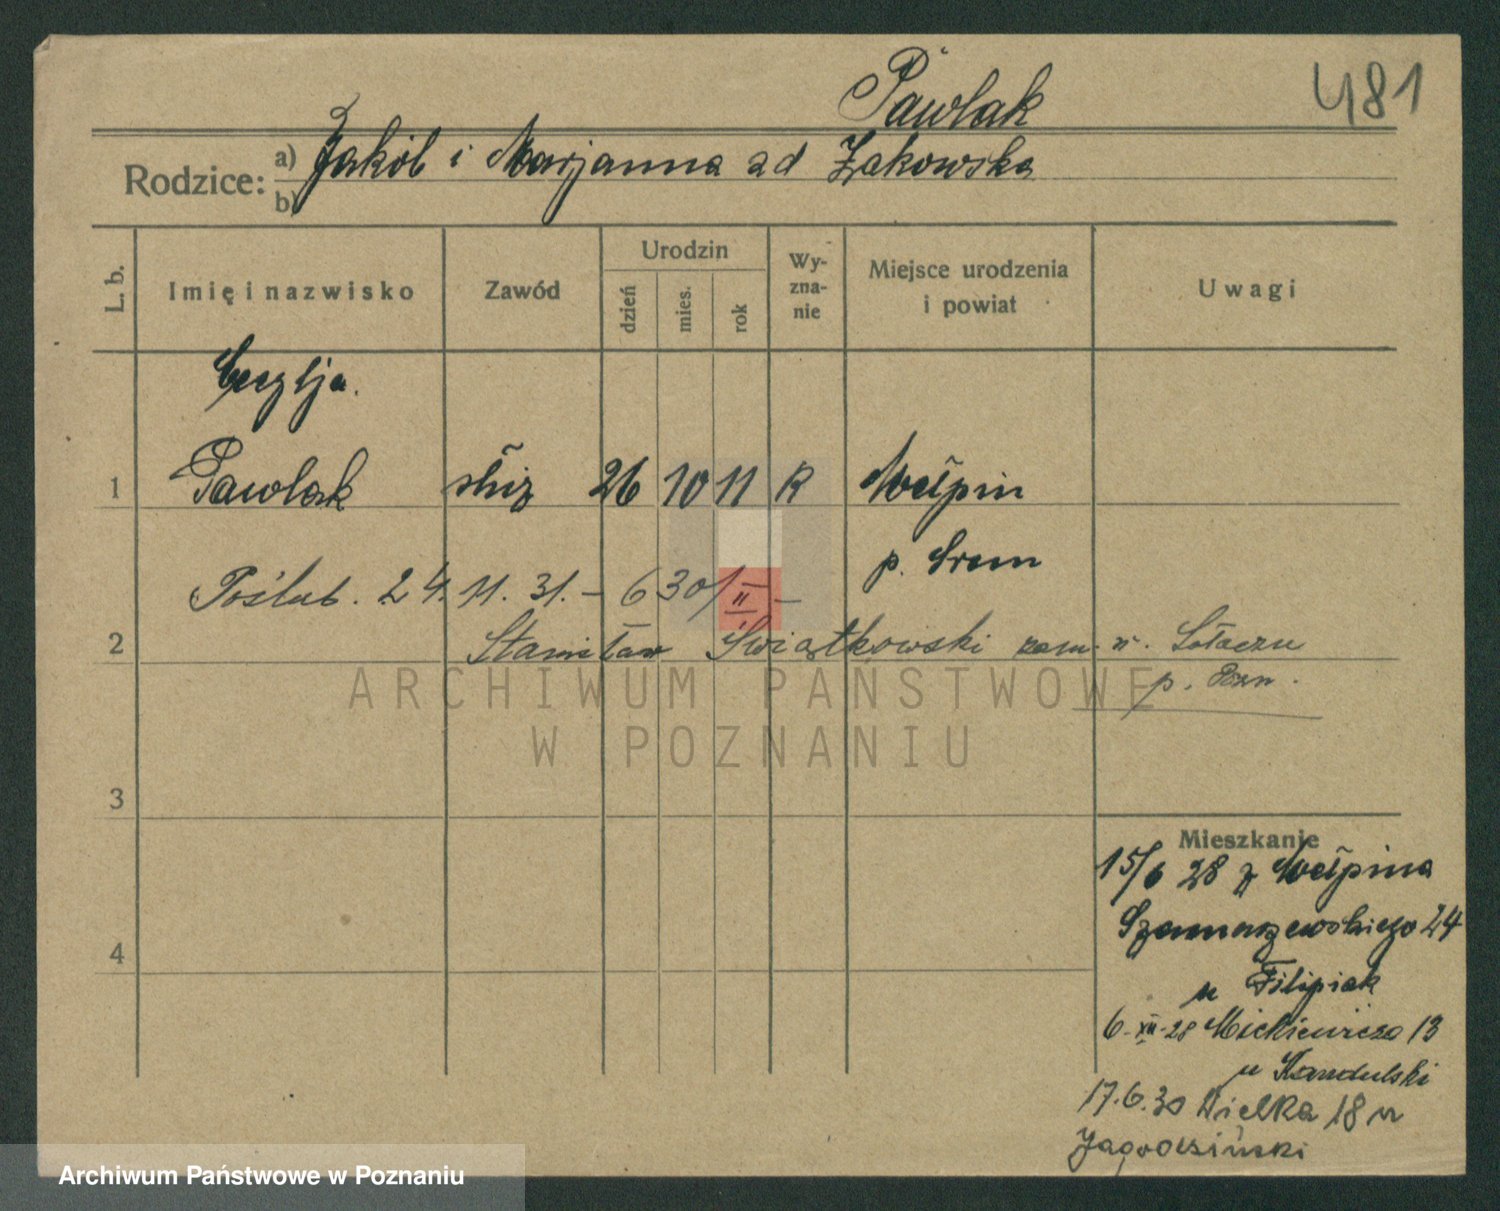 Pawlak
481
Rodzice: a) Jakób i Marjanna zd Żakowska
b)
L. b.
Imię i nazwisko
Zawód
Urodzin
dzień
mies.
rok
Wy-
zna-
nie
Miejsce urodzenia
i powiat
Uwagi
Cecylja.
1 Pawlak służ 26 10 11 R Mełpin
p. Śrem
Poślub. 24. 11. 31. – 630/II –
2 Stanisław Świątkowski zam. w. Sołaczu
p. Pozn.
3
4
Mieszkanie
15/6 28 z Mełpina
Szamarzewskiego 24
u Filipiak
6-XII-28 Mickiewicza 13
u Kandulski
17.6.30 Wielka 18 u
Jagrodziński
ARCHIWUM PAŃSTWOWE
W POZNANIU
Archiwum Państwowe w Poznaniu